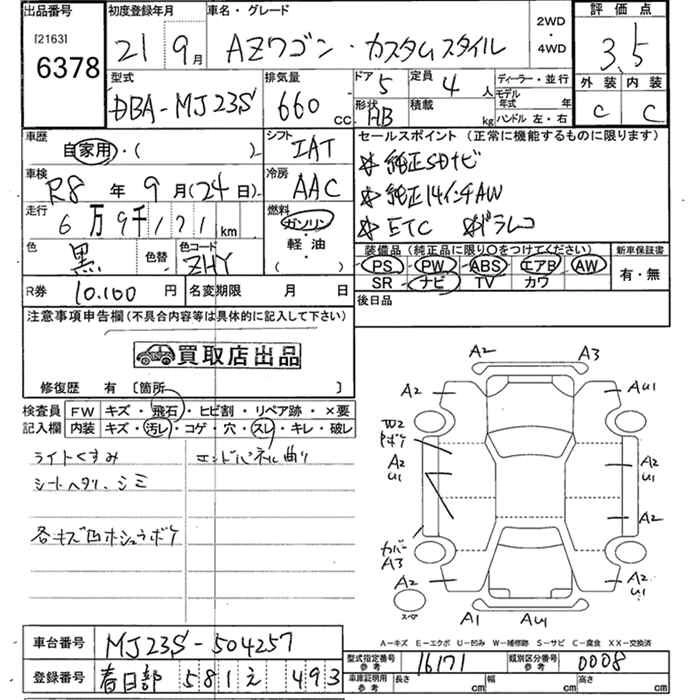 出品番号 初度登録年月 車名・グレード 2WD・4WD 評価点
[2163]
6378
21 9月 AZワゴン・カスタムスタイル 3.5
型式 排気量 ドア 5 定員 4人 ディーラー・並行 外装 内装
DBA-MJ23S 660cc 形状 HB 積載 kg モデル年式 年 ハンドル 左・右 C C
車歴 シフト セールスポイント (正常に機能するものに限ります)
自家用・( ) IAT ☆純正SDナビ
車検 R8年9月(24日) 冷房 AAC ☆純正14インチAW
走行 6万9千121km 燃料 ガソリン・軽油 ( ) ☆ETC ☆ドラレコ
色 黒 色替 色コード ZHY 装備品 (純正品に限り○をつけてください) 新車保証書
PS PW ABS エアB AW 有・無
SR ナビ TV カワ
R券 10.100円 名変期限 月 日 後日品
注意事項申告欄 (不具合内容等は具体的に記入して下さい)
買取店出品
修復歴 有 [箇所 ]
検査員記入欄 FW キズ・飛石・ヒビ割・リペア跡・×要
内装 キズ・汚レ・コゲ・穴・スレ・キレ・破レ
ライトくすみ エンドパネル曲り
シートヘタリ、シミ
各キズ凹ホシュウボケ
A2 A3
A2 AU1
A2 U1 A2 U1
A2
カバー A3
A2 U1 A2
スペア A1 AU1
A-キズ E-エクボ U-凹み W-補修跡 S-サビ C-腐食 XX-交換済
車台番号 MJ23S-504257
型式指定番号 参考 16171 類別区分番号 参考 0008
登録番号 春日部 581 え 493
車庫証明用 参考 長さ cm 幅 cm 高さ cm